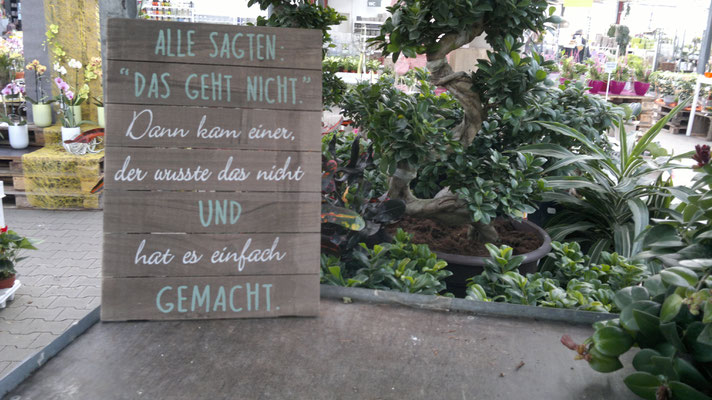 ALLE SAGTEN:
"DAS GEHT NICHT."
Dann kam einer,
der wusste das nicht
UND
hat es einfach
GEMACHT.